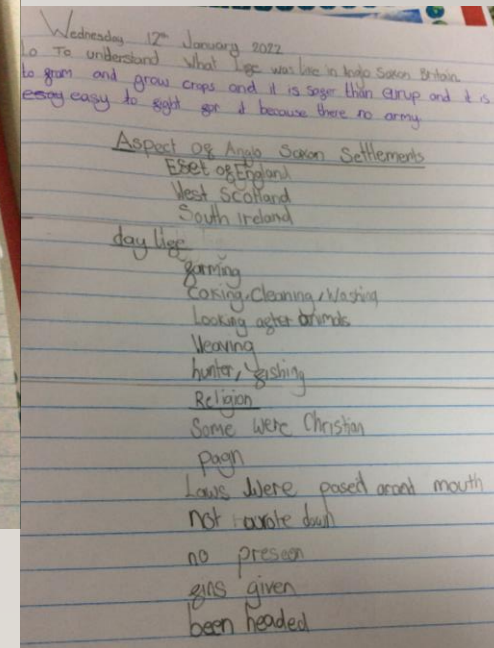 Wednesday 12th January 2022
Lo To understand what Lge was like in Anglo Saxon Britain
to gram and grow crops and it is sager than Eurup and it is
esay easy to gight gor it because there no army
Aspect og Anglo Saxon Settlements
Eset og England
West Scotland
South ireland
day lige
garming
Coking, Cleaning, Washing
Looking agter animals
Weaving
hunter, gishing
Religion
Some were Christian
pagn
Laws were pased arond mouth
not wrote down
no preseen
gins given
been headed